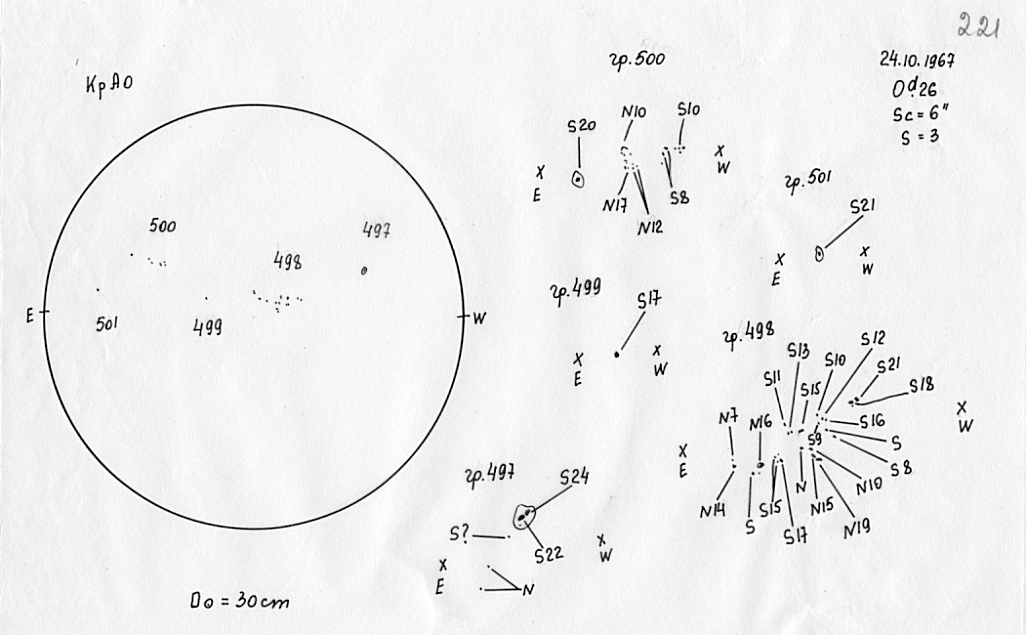 221
КрАО
24.10.1967
0ᵈ.26
Sc = 6"
S = 3
500
497
498
E
W
501
499
D⊙ = 30cm
гр.500
S20
N10
S10
X
E
X
W
N17
N12
S8
гр.501
S21
X
E
X
W
гр.499
S17
X
E
X
W
гр.498
S12
S13
S10
S21
S11
S15
S18
N7
N16
S9
S16
X
W
X
E
S
S8
N14
S
S15
S17
N
N15
N10
N19
гр.497
S24
S?
S22
X
W
X
E
N